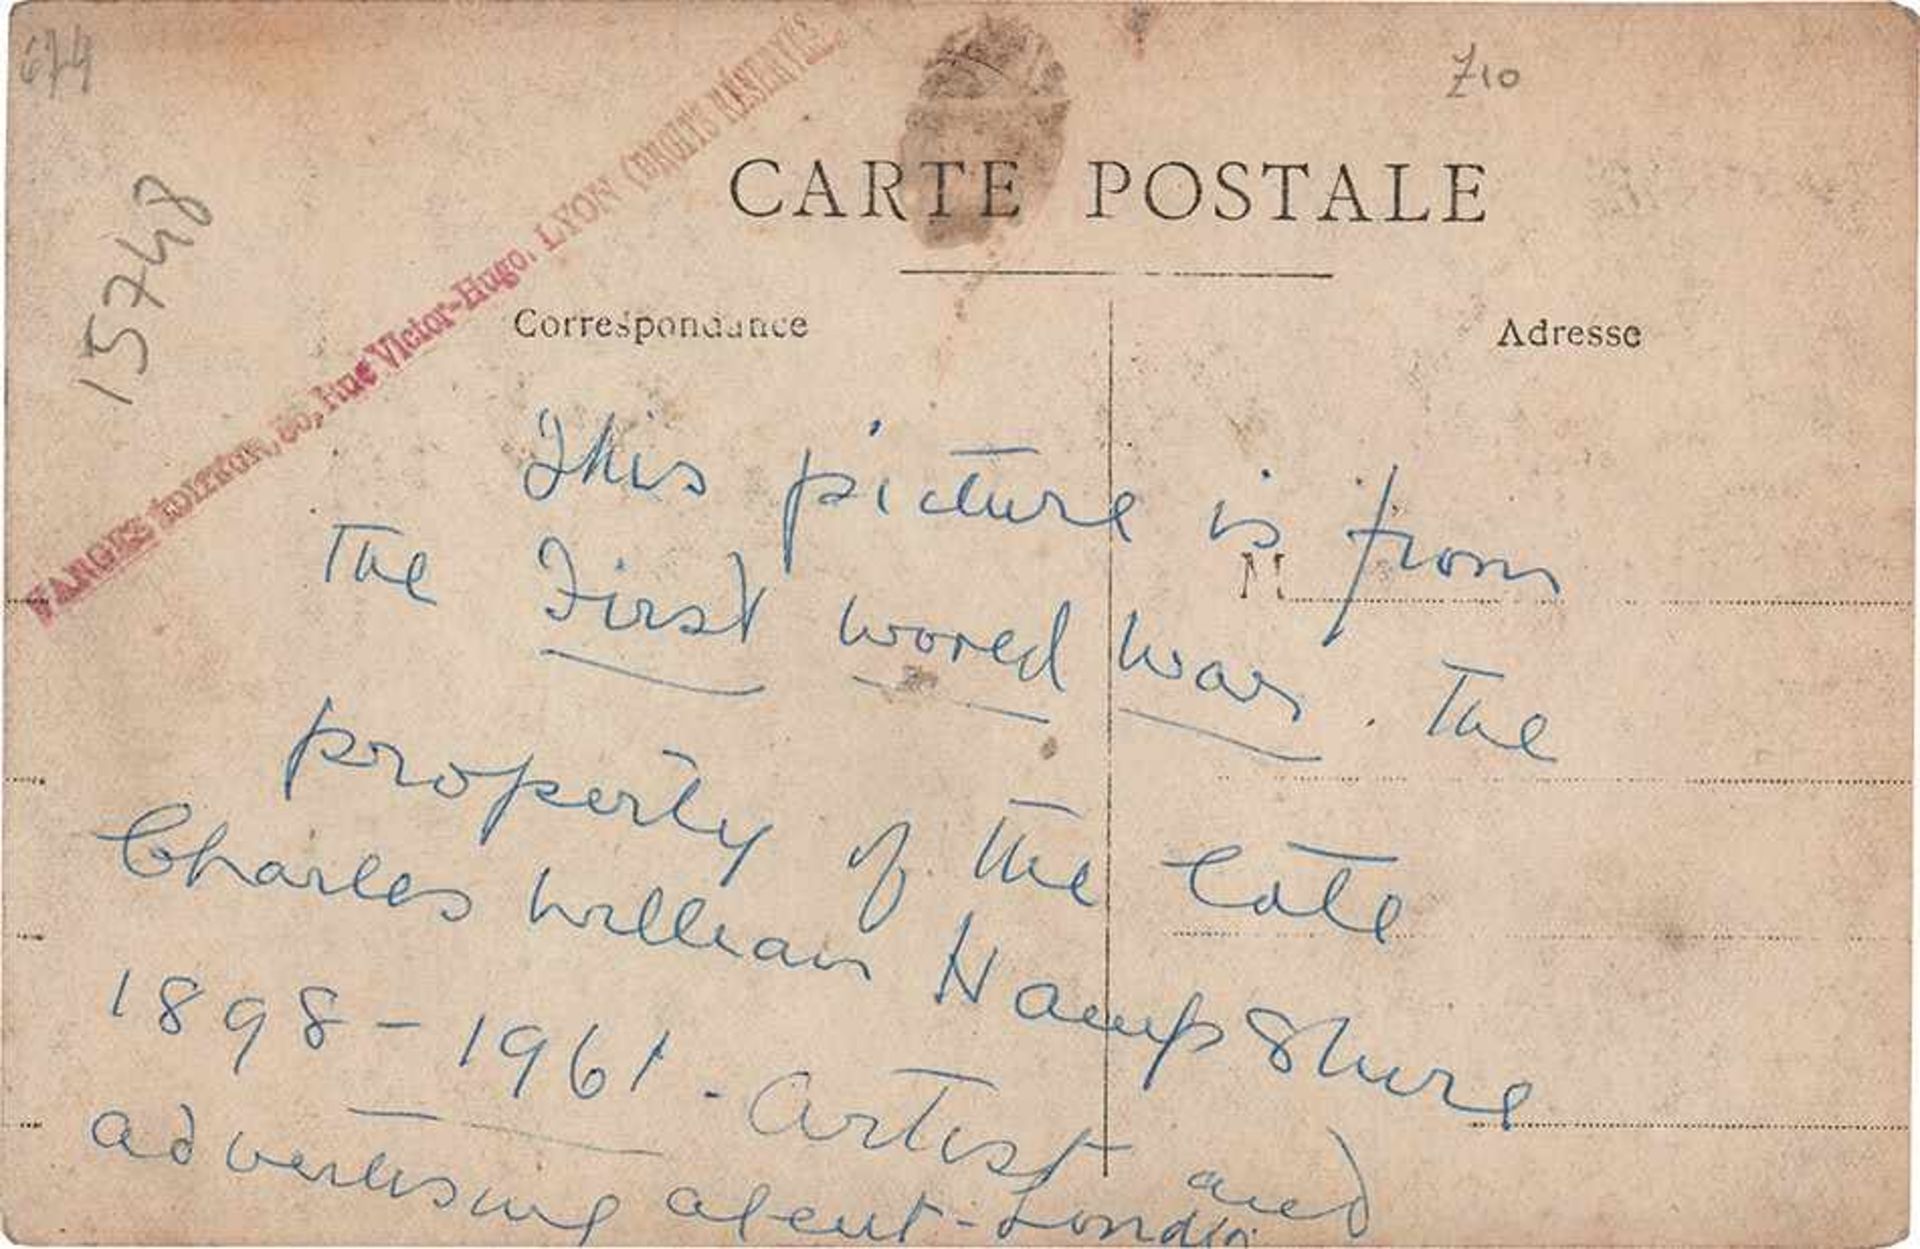 674
Z10
15748
FARGES ÉDITION, 30, Rue Victor-Hugo, LYON (DROITS RÉSERVÉS)
CARTE POSTALE
Correspondance
Adresse
M
This picture is from
the First wored War. The
property of the late
Charles William HampShire
1898-1961. Artist and
advertising agent-London